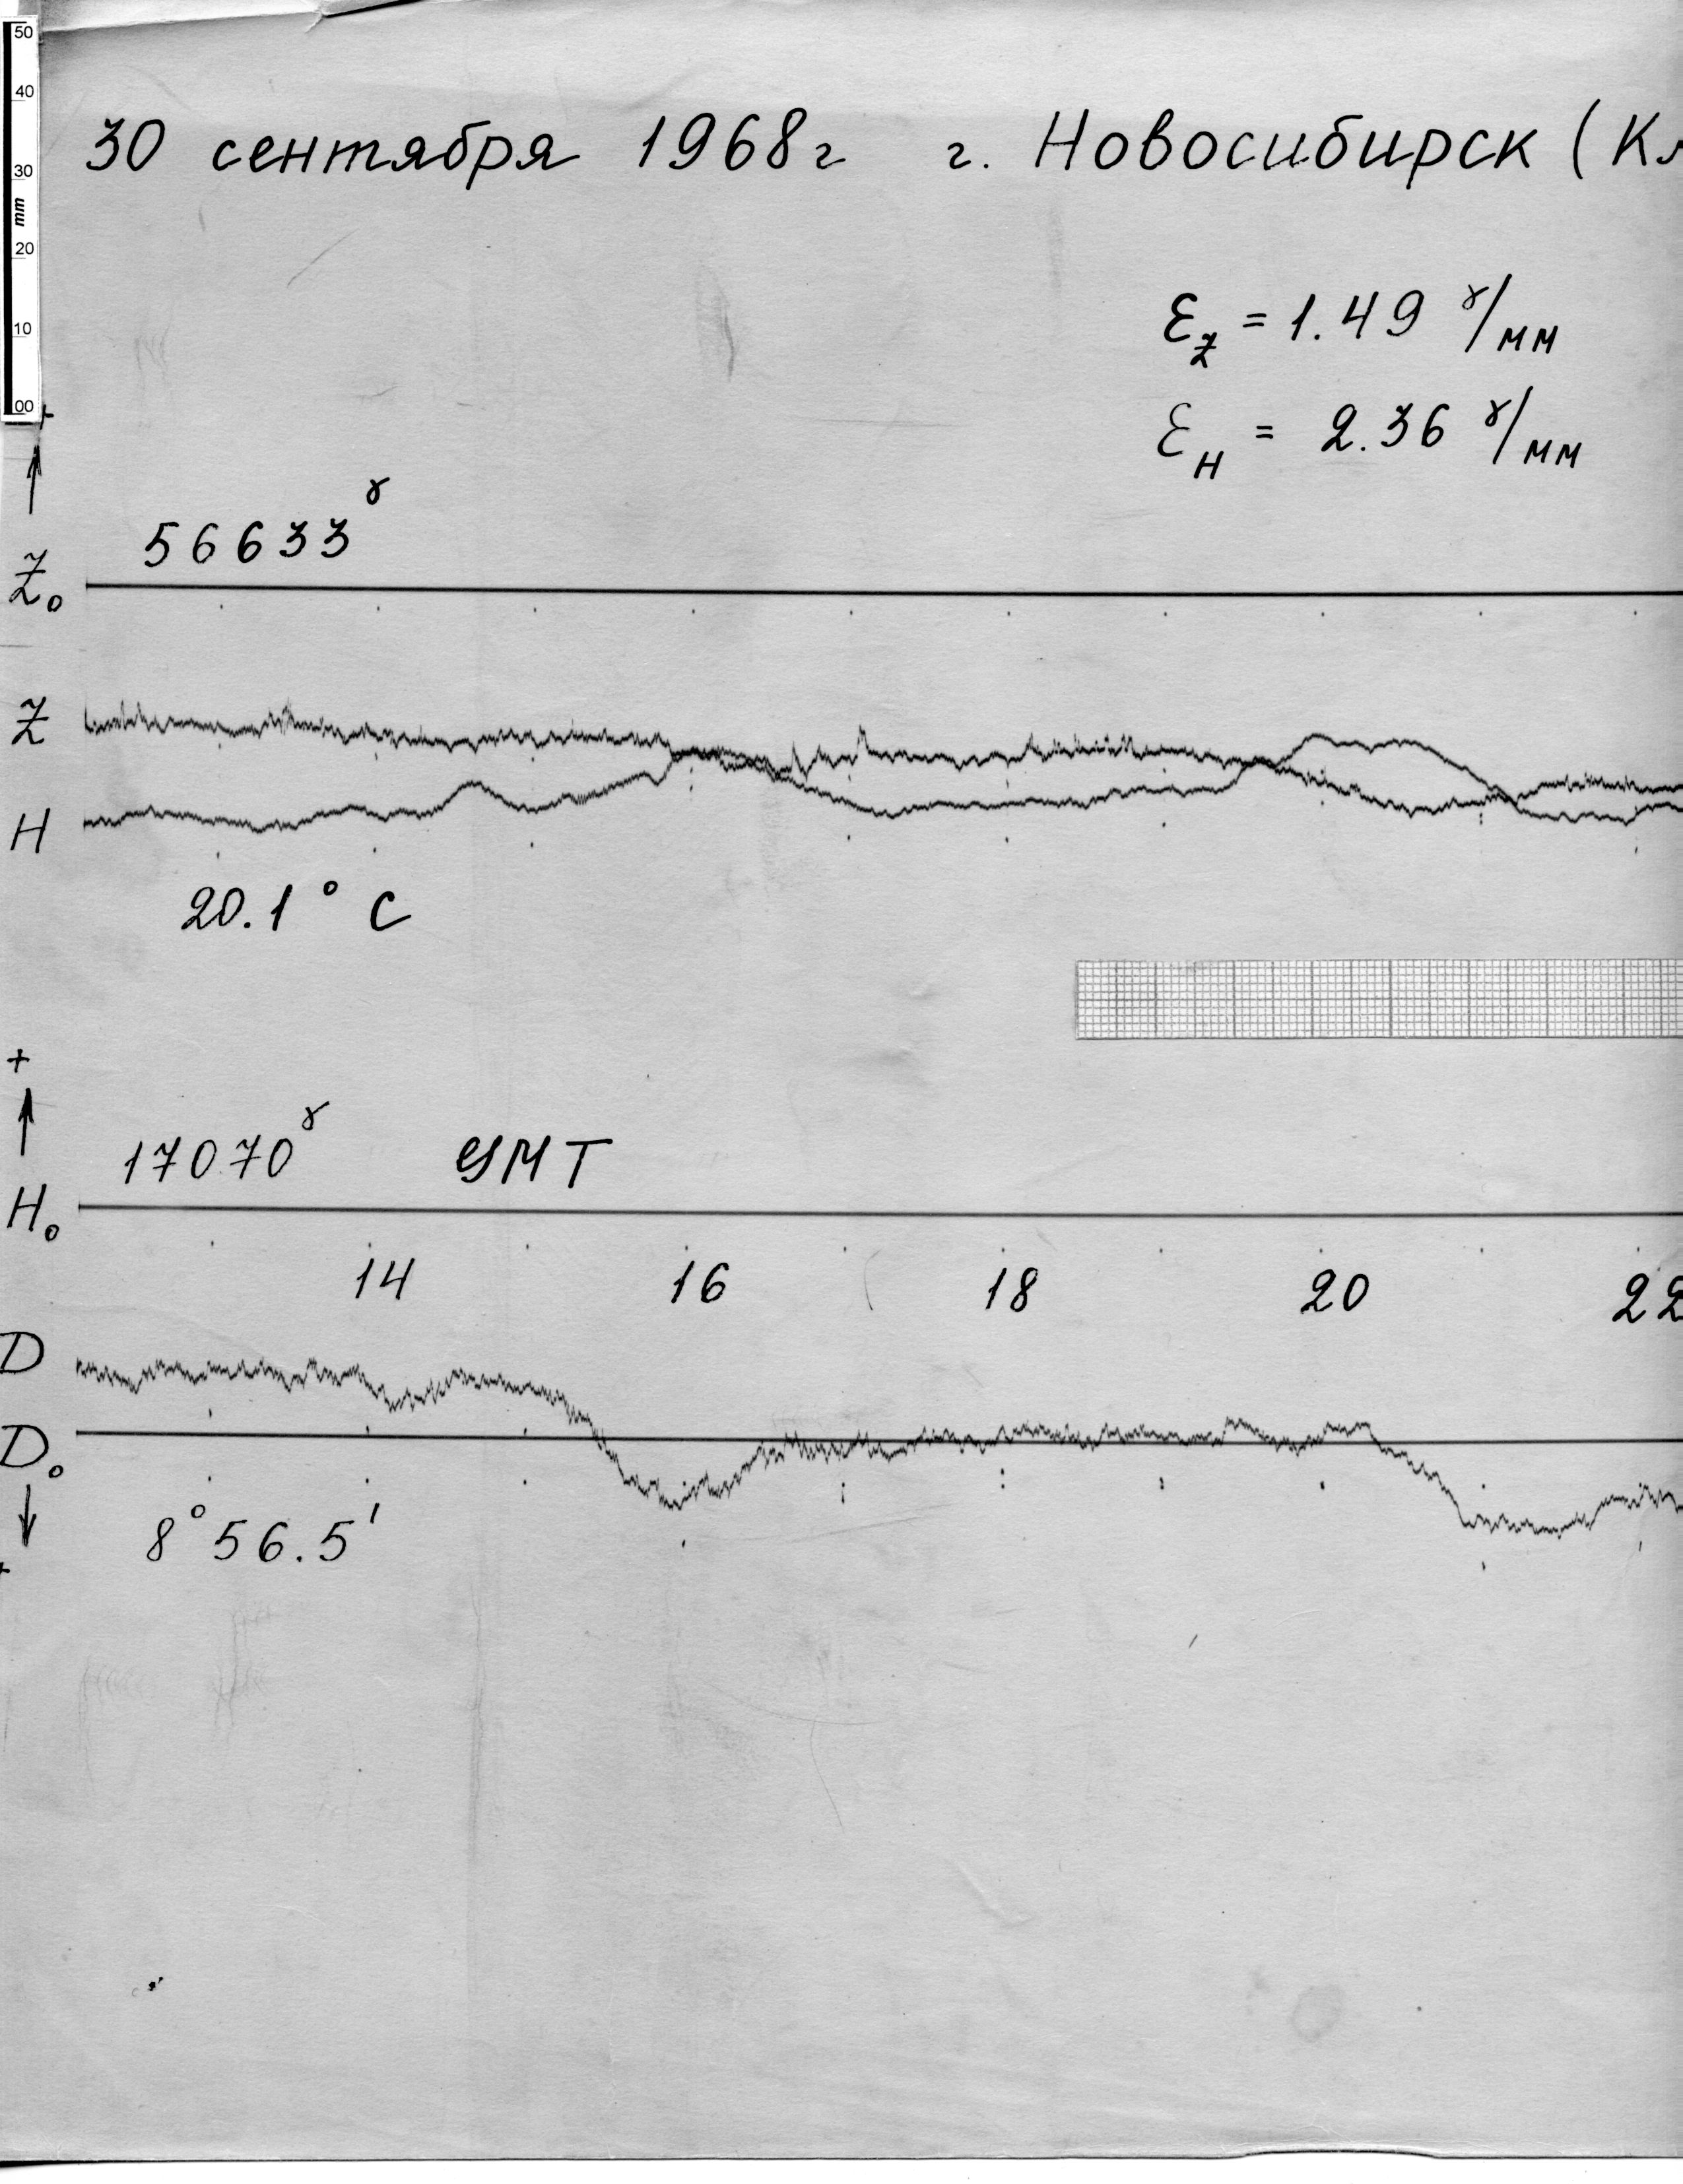 50
40
30
mm
20
10
00
30 сентября 1968г г. Новосибирск (Кл
Ɛz = 1.49 γ/мм
ƐH = 2.36 γ/мм
+
56633γ
Z₀
Z
H
20.1° C
+
17070γ GMT
H₀
14 16 18 20 22
D
D₀
8° 56.5'